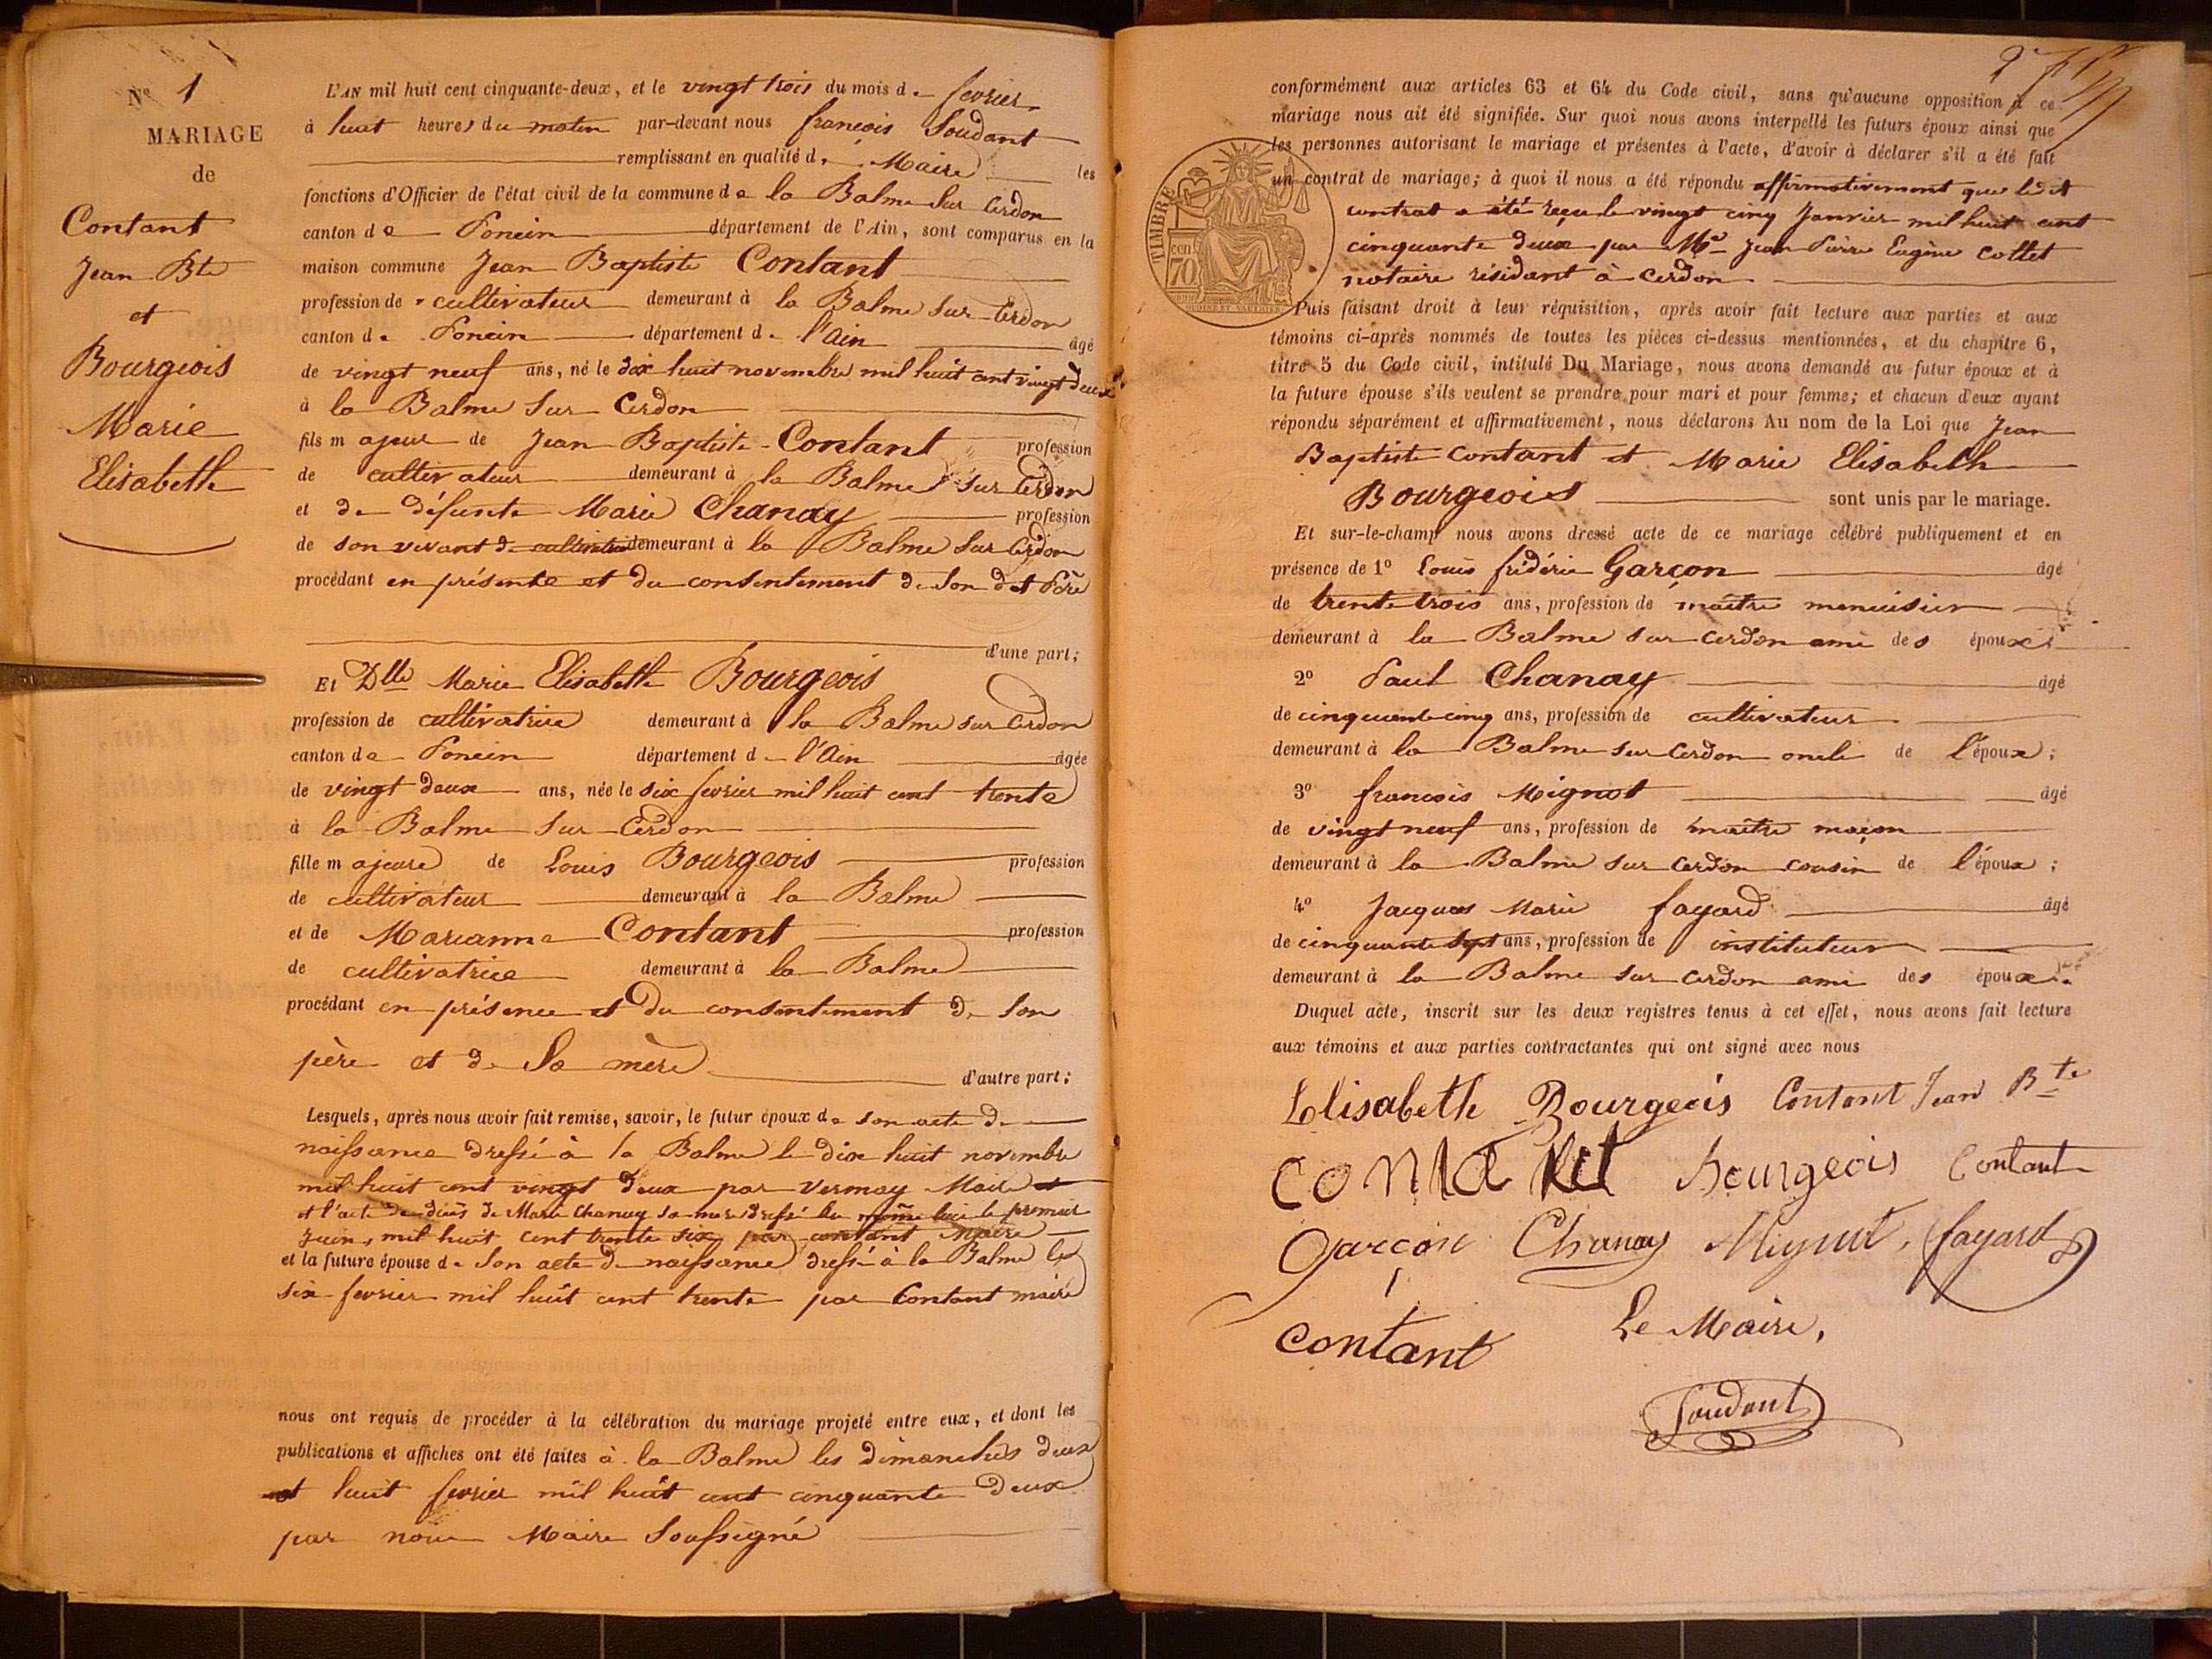 Nº 1
MARIAGE
de
Contant
Jean Bte
et
Bourgeois
Marie
Elisabeth
L'AN mil huit cent cinquante-deux, et le vingt trois du mois de fevrier
à huit heures du matin par-devant nous francois Soudant
remplissant en qualité de Maire les
fonctions d'Officier de l'état civil de la commune de la Balme sur Cerdon
canton de Poncin département de l'Ain, sont comparus en la
maison commune Jean Baptiste Contant
profession de cultivateur demeurant à la Balme sur Cerdon
canton de Poncin département de l'Ain âgé
de vingt neuf ans, né le dix huit novembre mil huit cent vingt deux
à la Balme sur Cerdon
fils majeur de Jean Baptiste Contant profession
de cultivateur demeurant à la Balme sur Cerdon
et de défunte Marie Chanay profession
de son vivant de demeurant à la Balme sur Cerdon
procédant en présence et du consentement de son dit Père
d'une part;
Et Dlle Marie Elisabeth Bourgeois
profession de cultivatrice demeurant à la Balme sur Cerdon
canton de Poncin département de l'Ain âgée
de vingt deux ans, née le six fevrier mil huit cent trente
à la Balme sur Cerdon
fille majeure de Louis Bourgeois profession
de cultivateur demeurant à la Balme
et de Marianne Contant profession
de cultivatrice demeurant à la Balme
procédant en présence et du consentement de son
père et de sa mère
d'autre part;
Lesquels, après nous avoir fait remise, savoir, le futur époux de son acte de
naissance dressé à la Balme le dix huit novembre
mil huit cent vingt deux par Vermay Maire et
et l'acte de décès de Marie Chanay sa mère dressé au même lieu le premier
Juin, mil huit cent trente six par contant Maire
et la future épouse de son acte de naissance dressé à la Balme le
six fevrier mil huit cent trente par Contant maire
nous ont requis de procéder à la célébration du mariage projeté entre eux, et dont les
publications et affiches ont été faites à la Balme les dimanches deux
et huit fevrier mil huit cent cinquante deux
par nous Maire Soussigné
conformément aux articles 63 et 64 du Code civil, sans qu'aucune opposition à ce
mariage nous ait été signifiée. Sur quoi nous avons interpellé les futurs époux ainsi que
les personnes autorisant le mariage et présentes à l'acte, d'avoir à déclarer s'il a été fait
un contrat de mariage; à quoi il nous a été répondu affirmativement que ledit
contrat a été reçu le vingt cinq Janvier mil huit cent
cinquante deux par Me Jean Pierre Eugène Cottet
notaire résidant à Cerdon
TIMBRE
cen
70.
Puis faisant droit à leur réquisition, après avoir fait lecture aux parties et aux
témoins ci-après nommés de toutes les pièces ci-dessus mentionnées, et du chapitre 6,
titre 5 du Code civil, intitulé Du Mariage, nous avons demandé au futur époux et à
la future épouse s'ils veulent se prendre pour mari et pour femme; et chacun d'eux ayant
répondu séparément et affirmativement, nous déclarons Au nom de la Loi que Jean
Baptiste Contant et Marie Elisabeth
Bourgeois sont unis par le mariage.
Et sur-le-champ nous avons dressé acte de ce mariage célébré publiquement et en
présence de 1º Louis frédéric Garçon âgé
de trente trois ans, profession de maître menuisier
demeurant à la Balme sur cerdon ami des époux;
2º Paul Chanay âgé
de cinquante cinq ans, profession de cultivateur
demeurant à la Balme sur cerdon oncle de l'époux;
3º francois Mignot âgé
de vingt neuf ans, profession de maître maçon
demeurant à la Balme sur cerdon cousin de l'époux;
4º Jacques Marie fayard âgé
de cinquante sept ans, profession de instituteur
demeurant à la Balme sur cerdon ami des époux.
Duquel acte, inscrit sur les deux registres tenus à cet effet, nous avons fait lecture
aux témoins et aux parties contractantes qui ont signé avec nous
Elisabeth Bourgeois Contant Jean Bte
contant Bourgeois Contant
Garçon Chanay Mignot, fayard
contant Le Maire,
Soudant